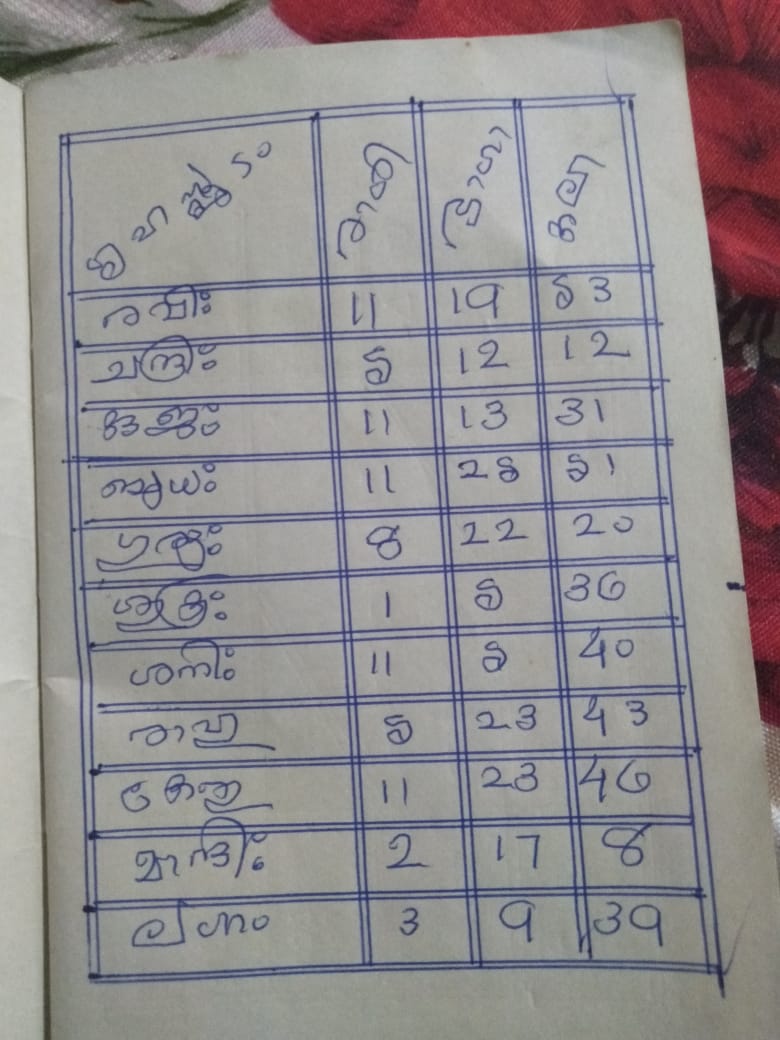 ഗ്രഹസ്ഫുടം രാശി ഭാഗ കല
രവിഃ 11 19 53
ചന്ദ്രഃ 5 12 12
കുജഃ 11 13 31
ബുധഃ 11 25 51
ഗുരുഃ 8 22 20
ശുക്രഃ 1 5 36
ശനിഃ 11 5 40
രാഹു 5 23 43
കേതു 11 23 46
മാന്ദിഃ 2 17 8
ലഗ്നം 3 9 39